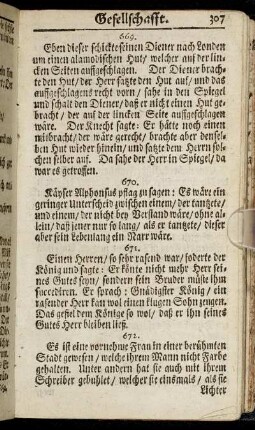 Gesellschafft. 307
669.
Eben dieser schickte seinen Diener nach Londen
um einen alamodischen Hut/ welcher auf der lin-
cken Seiten auffgeschlagen. Der Diener brach-
te den Hut/ der Herr satzte den Hut auf/ und das
auffgeschlagene recht vorn/ sahe in den Spiegel
und schalt den Diener/ daß er nicht einen Hut ge-
bracht/ der auf der lincken Seite auffgeschlagen
wäre. Der Knecht sagte: Er hätte noch einen
mitbracht/ der wäre gerecht/ brachte aber denselben
Hut wieder hinein/ und satzte dem Herrn sol-
chen selber auf. Da sahe der Herr in Spiegel/ da
war es getroffen.
670.
Käyser Alphonsus pflag zu sagen: Es wäre ein
geringer Unterscheid zwischen einem/ der tantzete/
und einem/ der nicht bey Verstand wäre/ ohne al-
lein/ daß jener nur so lang/ als er tantzete/ dieser
aber sein Lebenlang ein Narr wäre.
671.
Einen Herren/ so sehr rasend war/ foderte der
König und sagte: Er könte nicht mehr Herr sei-
nes Gutes seyn/ sondern sein Bruder müste ihm
succediren. Er sprach: Gnädigster König/ ein
rasender Herr kan wol einen klugen Sohn zeugen.
Das gefiel dem Könige so wol/ daß er ihn seines
Gutes Herr bleiben ließ.
672.
Es ist eine vornehme Frau in einer berühmten
Stadt gewesen/ welche ihrem Mann nicht Farbe
gehalten. Unter andern hat sie auch mit ihrem
Schreiber gebuhlet/ welcher sie einsmals/ als sie
Lichter